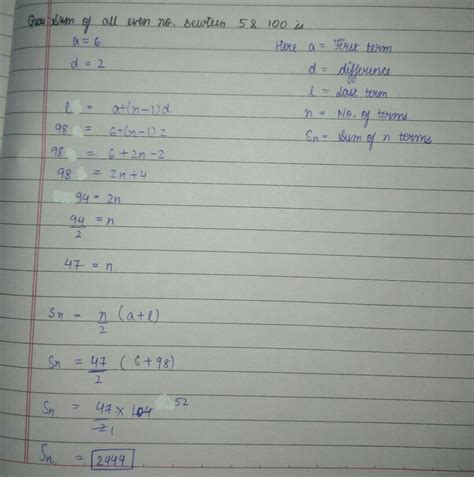 Ques: Sum of all even no. between 5 & 100 is
a = 6
d = 2
Here a = First term
d = difference
l = Last term
n = No. of terms
Sn = Sum of n terms
l = a+(n-1)d
98 = 6+(n-1)2
98 = 6+2n-2
98 = 2n+4
94 = 2n
94/2 = n
47 = n.
Sn = n/2 (a+l)
Sn = 47/2 (6+98)
Sn = 47 × 104 52 / 2 1
Sn = 2444